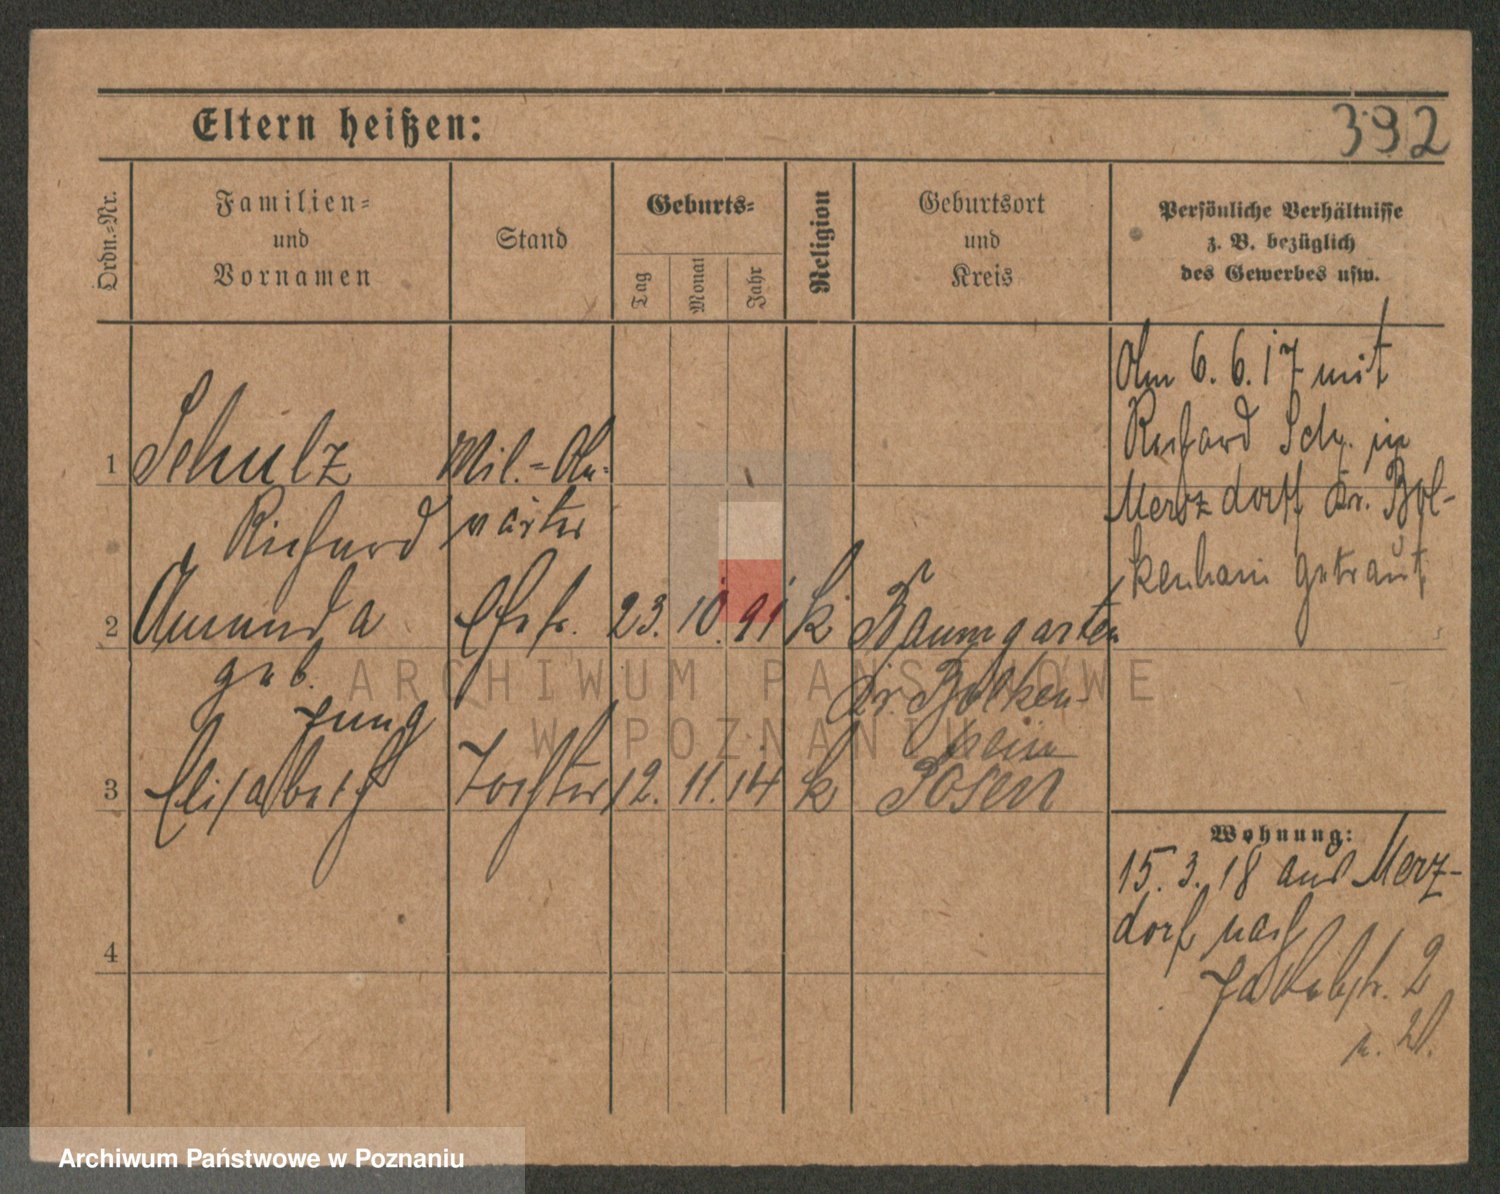 Eltern heißen:
392
Ordn.-Nr.
Familien-
und
Vornamen
Stand
Geburts-
Tag
Monat
Jahr
Religion
Geburtsort
und
Kreis
Persönliche Verhältnisse
z. B. bezüglich
des Gewerbes usw.
Am 6.6.17 mit
Richard Sch. in
Merzdorf Kr. Bol-
kenhain getraut
1 Schulz Mil.-An-
Richard wärter
2 Amanda Ehefr. 23. 10. 91 k Baumgarten
geb. Kr. Bolken-
Jung hein
3 Elisabeth Tochter 12. 11. 14 k Posen
4
Wohnung:
15.3.18 aus Merz-
dorf nach
Jakobstr. 2
ARCHIWUM PAŃSTWOWE
W POZNANIU
Archiwum Państwowe w Poznaniu